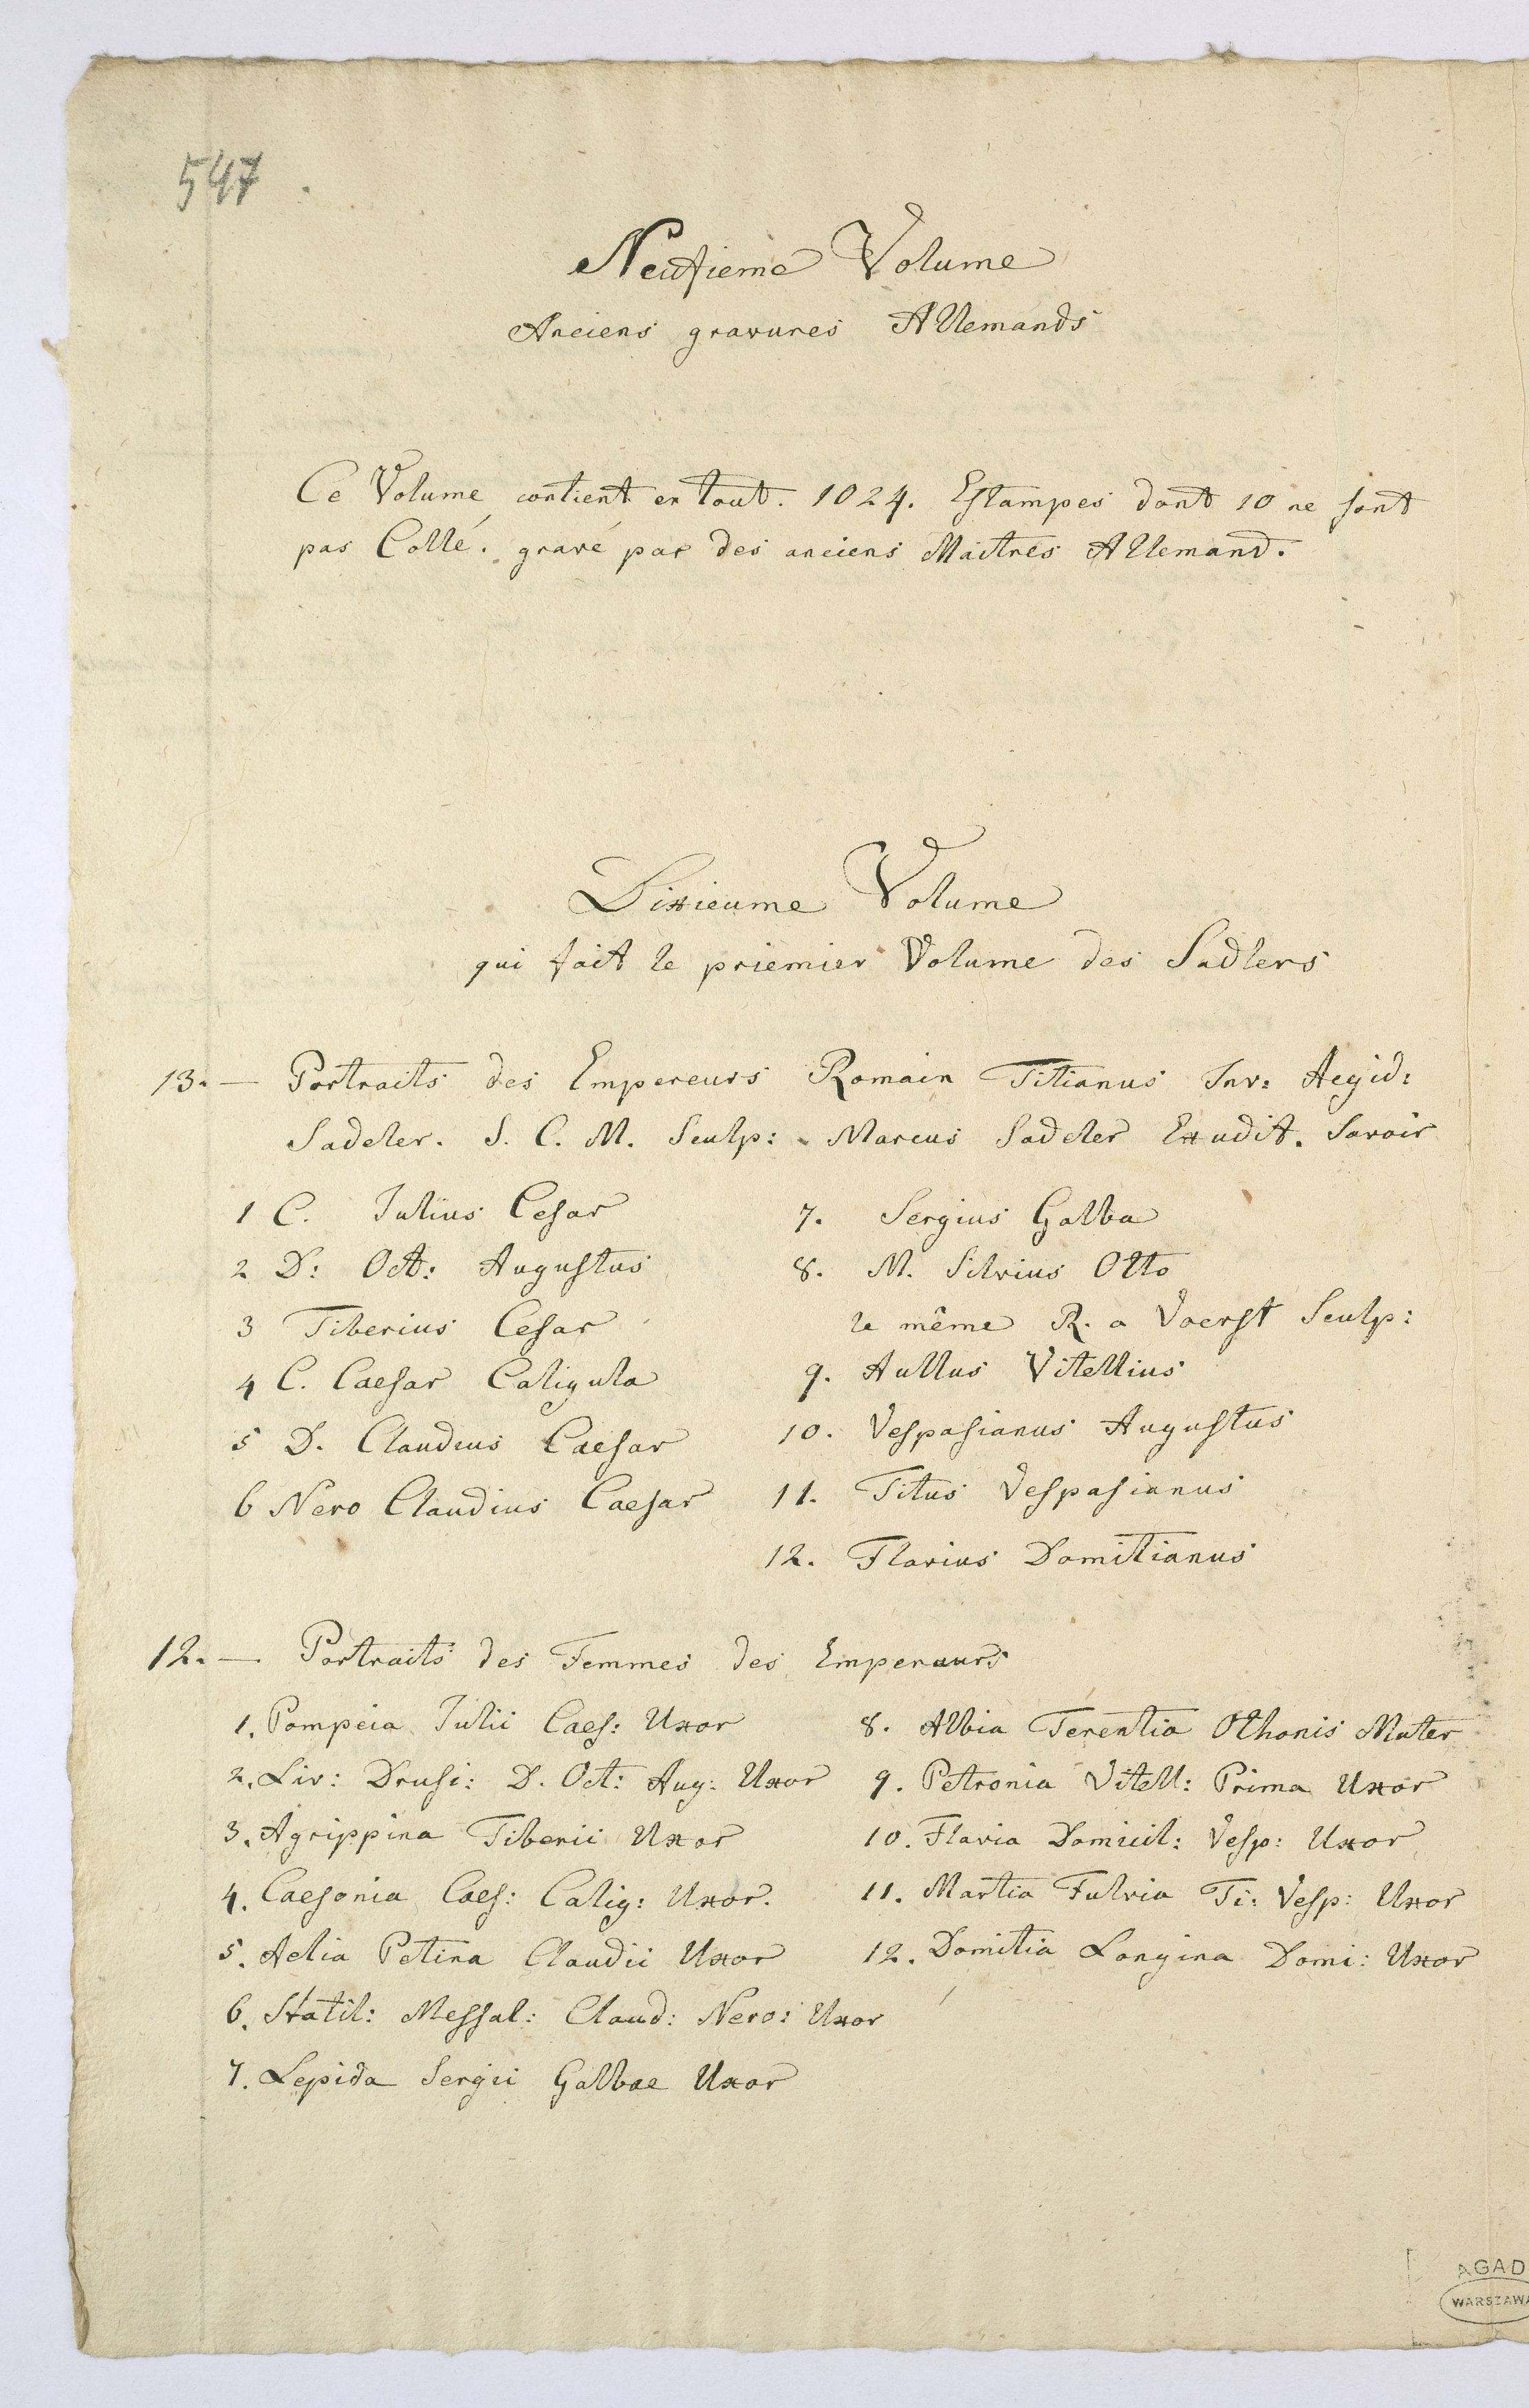 547
Neufieme Volume
Anciens gravures Allemands
Ce Volume contient en tout. 1024. Estampes dont 10 ne sont
pas Collé. gravé par des anciens Maitres Allemand.
Dixieume Volume
qui fait le priemier Volume des Sadlers
13. — Portraits des Empereurs Romain Titianus Inv: Aegid:
Sadeler. S. C. M. Sculp: Marcus Sadeler Exudit. Savoir
1 C. Iulius Cesar
2 D: Oct: Augustus
3 Tiberius Cesar
4 C. Caesar Caligula
5 D. Claudius Caesar
6 Nero Claudius Caesar
7. Sergius Galba
8. M. Silvius Otto
le même R. a Voerst Sculp:
9. Aullus Vitellius
10. Vespasianus Augustus
11. Titus Vespasianus
12. Flavius Domitianus
12. — Portraits des Femmes des Empereurs
1. Pompeia Iulii Caes: Uxor
2. Liv: Drusi: D. Oct: Aug: Uxor
3. Agrippina Tiberii Uxor
4. Caesonia Caes: Calig: Uxor.
5. Aelia Petina Claudii Uxor
6. Statil: Messal: Claud: Nero: Uxor
7. Lepida Sergii Galbae Uxor
8. Albia Terentia Othonis Mater
9. Petronia Vitell: Prima Uxor
10. Flavia Domicil: Vesp: Uxor
11. Martia Fulvia Ti: Vesp: Uxor
12. Domitia Longina Domi: Uxor
AGAD
WARSZAWA